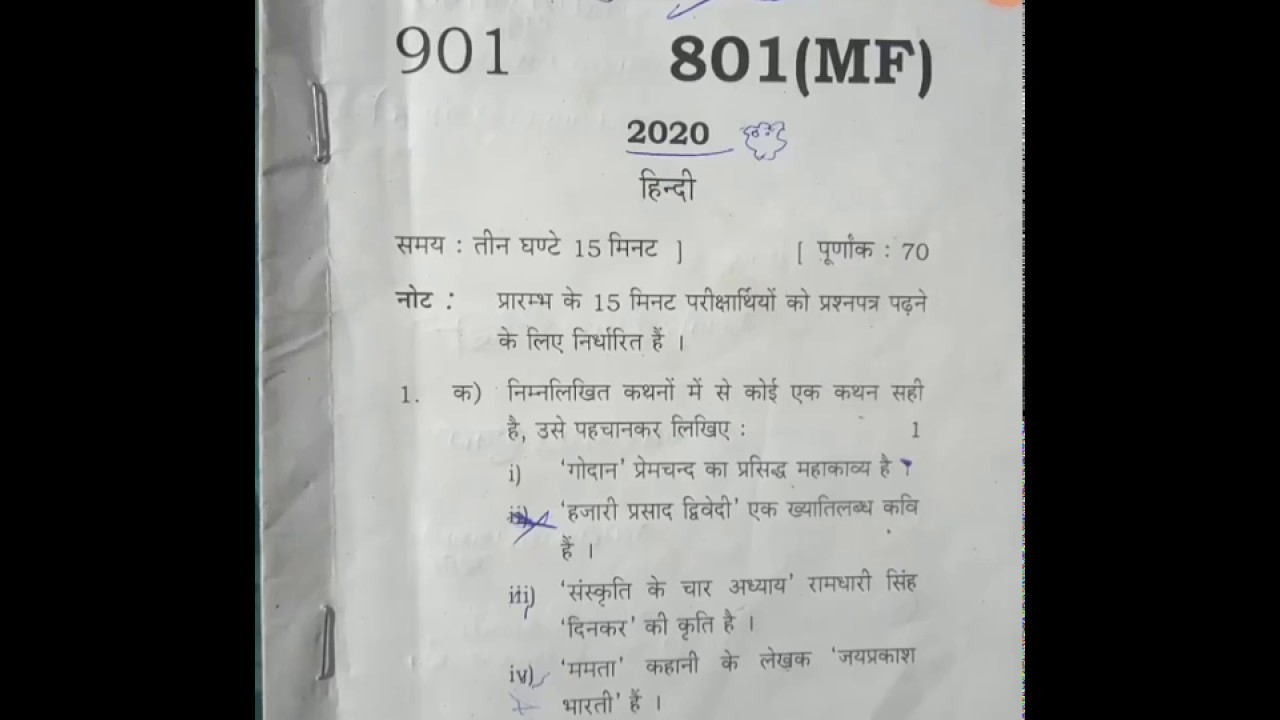 901 801(MF)
2020
हिन्दी
समय : तीन घण्टे 15 मिनट ] [ पूर्णांक : 70
नोट : प्रारम्भ के 15 मिनट परीक्षार्थियों को प्रश्नपत्र पढ़ने
के लिए निर्धारित हैं ।
1. क) निम्नलिखित कथनों में से कोई एक कथन सही
है, उसे पहचानकर लिखिए : 1
i) 'गोदान' प्रेमचन्द का प्रसिद्ध महाकाव्य है ।
ii) 'हजारी प्रसाद द्विवेदी' एक ख्यातिलब्ध कवि
हैं ।
iii) 'संस्कृति के चार अध्याय' रामधारी सिंह
'दिनकर' की कृति है ।
iv) 'ममता' कहानी के लेखक 'जयप्रकाश
भारती' हैं ।